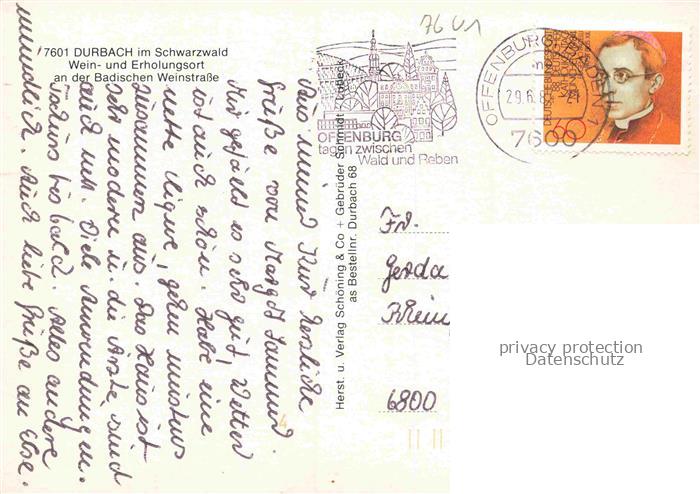 7601 DURBACH im Schwarzwald
Wein- und Erholungsort
an der Badischen Weinstraße
Aus meiner Kur herzliche
Grüße von Margot
Mir gefällt es sehr gut, Wetter
ist auch schön. Habe eine
nette Clique, gehen meistens
zusammen aus. Das Haus ist
sehr modern u. die Ärzte sind
auch nett. Viele Anwendungen.
Tschüss bis bald. Alles andere
mündlich. Auch liebe Grüße an Else.
Herst. u. Verlag Schöning & Co + Gebrüder Schmidt · Lübeck
as Bestellnr. Durbach 68
7601
OFFENBURG
tagen zwischen
Wald und Reben
OFFENBURG, BADEN 1
29.6.8
7600
60
Fr.
Gerda
Rhein
6800
4
privacy protection
Datenschutz